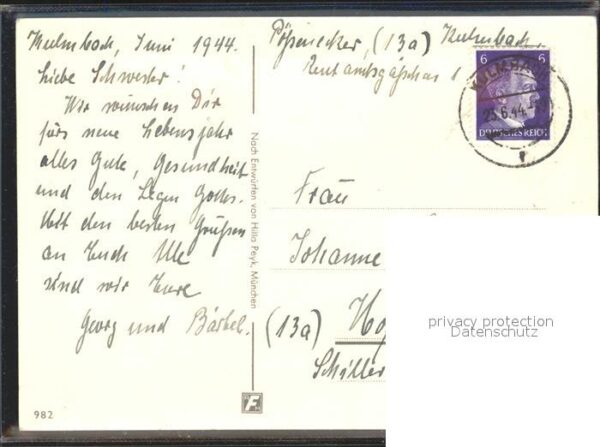 Kulmbach, Juni 1944.
Liebe Schwester!
Wir wünschen Dir
fürs neue Lebensjahr
alles Gute, Gesundheit
und den Segen Gottes.
Mit den besten Grüßen
an Euch Alle
sind wir Eure
Georg und Bärbel.
982
Nach Entwürfen von Hilla Peyk, München
F
Pößenecker, (13a) Kulmbach
Rentamtsgäßchen
6 6
KULMBACH
23.6.44
DEUTSCHES REICH
Frau
Johanne
(13a) Ho
Schiller
privacy protection
Datenschutz